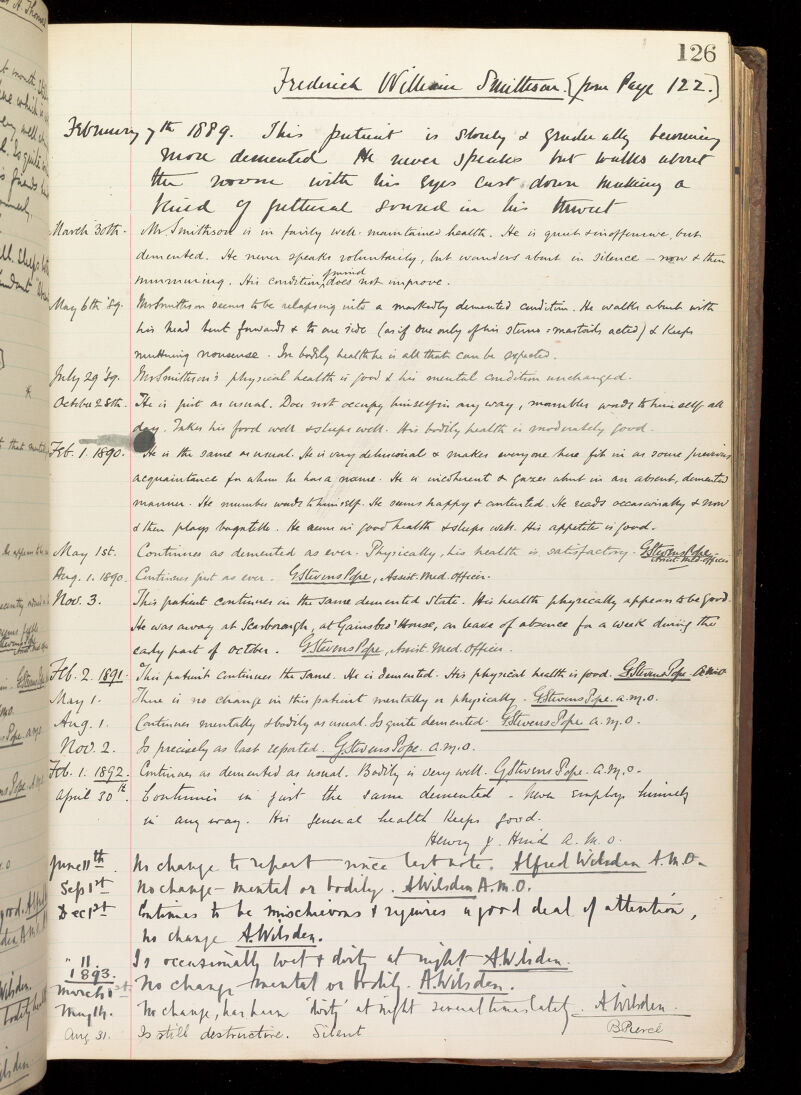 126
Frederick William Smithson. (from Page 122.)
February 7th 1889. This patient is slowly & gradually becoming
more demented He never speaks but walks about
the room with his eyes cast down making a
kind of guttural sound in his throat
March 30th. Mr Smithson is in fairly well-maintained health. He is quiet & inoffensive, but
demented. He never speaks voluntarily, but wanders about in silence – now & then
murmuring. His condition does not improve.
May 6th '89. Mr Smithson seems to be relapsing into a markedly demented condition. He walks about with
his head bent forwards & to one side (as if one only of his sterno-mastoids acted) & keeps
muttering nonsense. In bodily health he is all that can be expected.
July 29 '89. Mr Smithson's physical health is good & his mental condition unchanged.
October 28th. He is just as usual. Does not occupy himself in any way, mumbles words to himself all
day. Takes his food well & sleeps well. His bodily health is moderately good.
Feb. 1. 1890. He is the same as usual. He is very delusional & makes everyone here fit in as some previous
acquaintance for whom he has a name. He is incoherent & gazes about in an absent, demented
manner. He mumbles words to himself. He seems happy & contented. He reads occasionally & now
& then plays bagatelle. He seems in good health & sleeps well. His appetite is good.
May 1st. Continues as demented as ever. Physically, his health is satisfactory. G Stevens Pope, Assist. Med. Officer
Aug. 1. 1890. Continues just as ever. G Stevens Pope, Assist. Med. Officer.
Nov. 3. This patient continues in the same demented state. His health physically appears to be good.
He was away at Scarborough, at Gainsbro' House, on leave of absence for a week during the
early part of October. G Stevens Pope, Assist. Med. Officer.
Feb. 2. 1891. This patient continues the same. He is demented. His physical health is good. G Stevens Pope A.M.O
May 1. There is no change in this patient mentally or physically. G Stevens Pope. a.m.o.
Aug. 1. Continues mentally & bodily as usual. Is quite demented. G Stevens Pope a.m.o.
Nov. 2. Is precisely as last reported. G Stevens Pope. a.m.o.
Feb. 1. 1892. Continues as demented as usual. Bodily is very well. G Stevens Pope. A.M.O.
April 30th. Continues in just the same demented - Never employs himself
in any way. His general health keeps good.
Henry J. Hind A.M.O.
June 11th. No change to report since last note. Alfred Wilsden A.M.O.
Sept 1st No change – mental or bodily. A Wilsden A.M.O.
Dec 1st Continues to be mischievous & requires a good deal of attention,
no change A. Wilsden.
" 11. Is occasionally wet & dirty at night A. Wilsden.
1893.
March 1st. No change mental or bodily. A. Wilsden.
May 14. No change, has been 'dirty' at night several times lately. A Wilsden.
Aug 31. Is still destructive. Silent B Pierce